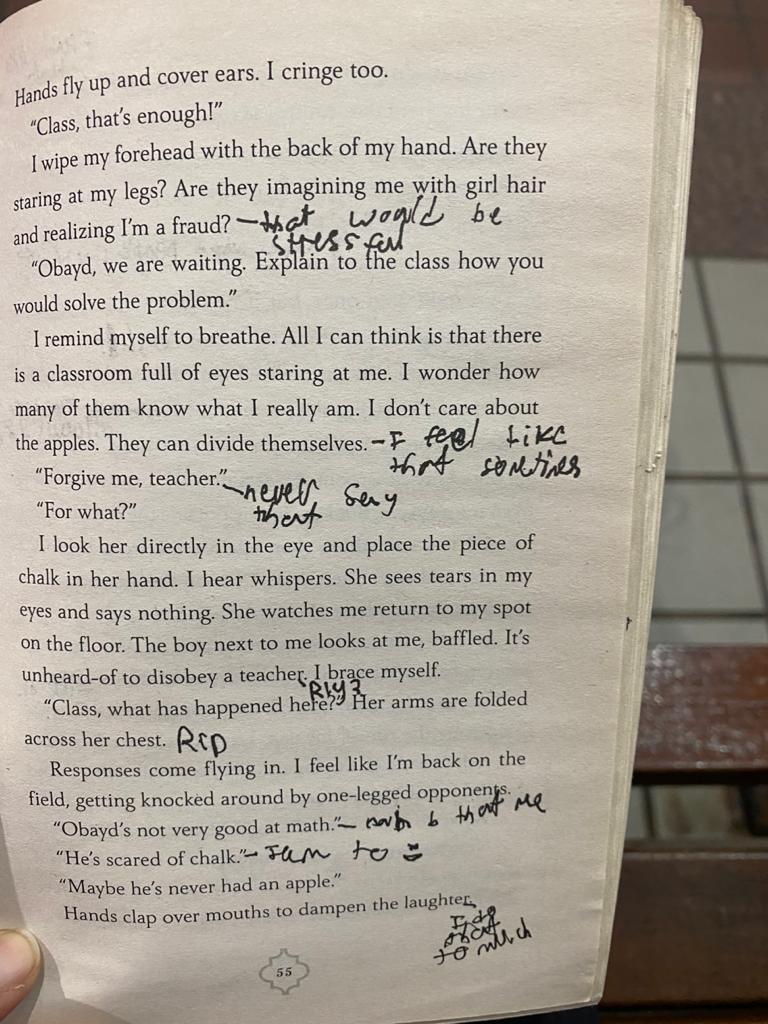 Hands fly up and cover ears. I cringe too.
"Class, that's enough!"
I wipe my forehead with the back of my hand. Are they
staring at my legs? Are they imagining me with girl hair
and realizing I'm a fraud? – that would be
stressful
"Obayd, we are waiting. Explain to the class how you
would solve the problem."
I remind myself to breathe. All I can think is that there
is a classroom full of eyes staring at me. I wonder how
many of them know what I really am. I don't care about
the apples. They can divide themselves. – I feel like
that somtimes
"Forgive me, teacher." – never say
that
"For what?"
I look her directly in the eye and place the piece of
chalk in her hand. I hear whispers. She sees tears in my
eyes and says nothing. She watches me return to my spot
on the floor. The boy next to me looks at me, baffled. It's
unheard-of to disobey a teacher. I brace myself.
Rly?
"Class, what has happened here?" Her arms are folded
across her chest. RIP
Responses come flying in. I feel like I'm back on the
field, getting knocked around by one-legged opponents.
"Obayd's not very good at math." – that me
"He's scared of chalk." – to
"Maybe he's never had an apple."
Hands clap over mouths to dampen the laughter.
I do
that
to much
55